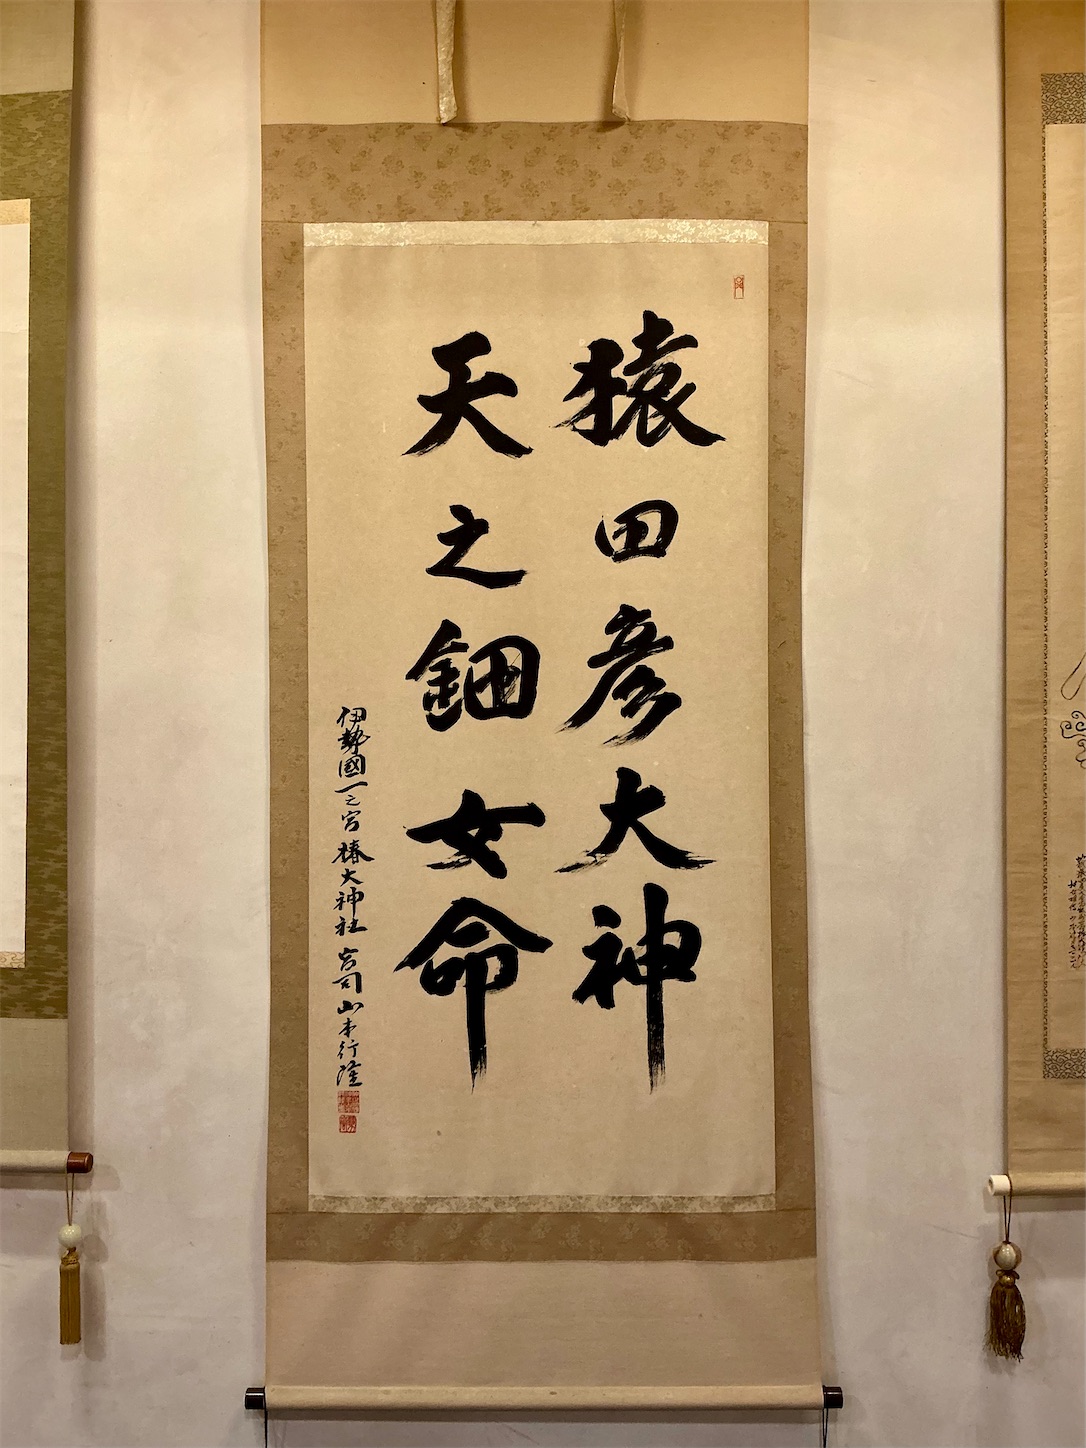 猿田彦大神
天之鈿女命
伊勢國一之宮 椿大神社 宮司 山本行隆